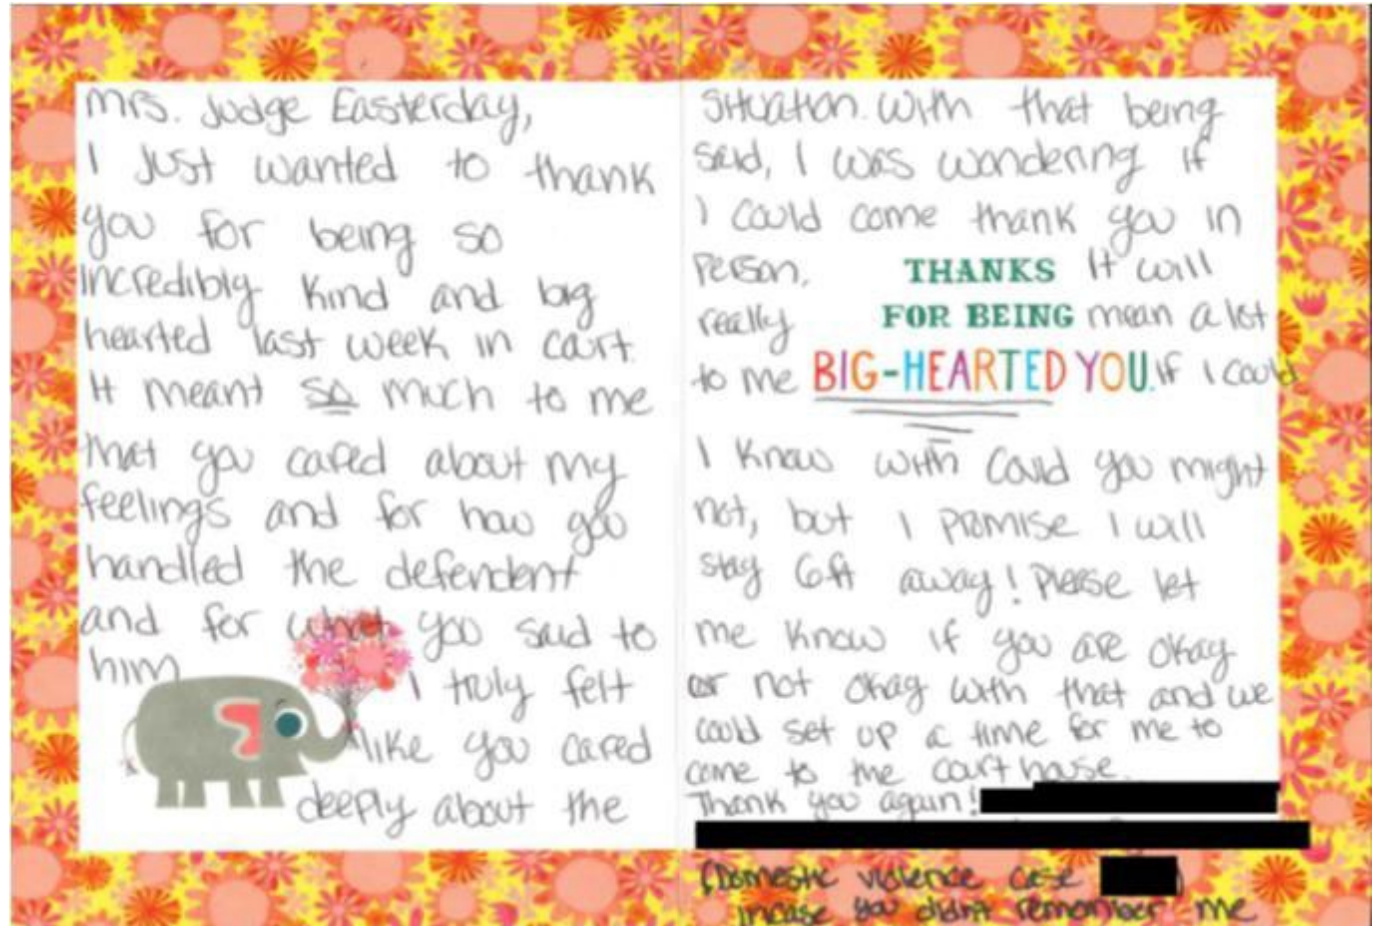 Mrs. Judge Easterday,
I Just wanted to thank
you for being so
incredibly kind and big
hearted last week in court.
It meant so much to me
that you cared about my
feelings and for how you
handled the defendent
and for what you said to
him
I truly felt
like you cared
deeply about the
situation. With that being
said, I was wondering if
I could come thank you in
person. THANKS It will
really FOR BEING mean a lot
to me BIG-HEARTED YOU. If I could
I know with Covid you might
not, but I promise I will
stay 6ft away! Please let
me know if you are okay
or not okay with that and we
could set up a time for me to
come to the court house.
Thank you again!
(Domestic violence case )
incase you didn't remember me